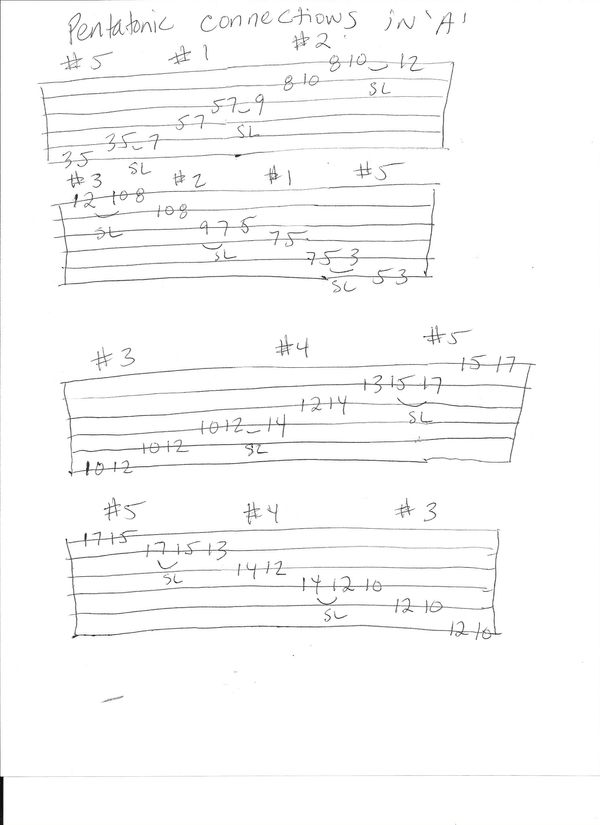 Pentatonic connections in 'A'
#5 #1 #2
8 10 12
8 10 SL
5 7 9
5 7 SL
3 5 7
3 5 SL
#3 #2 #1 #5
12 10 8
10 8
SL
9 7 5
7 5
SL
7 5 3
5 3
SL
#3 #4 #5
15 17
13 15 17
12 14 SL
10 12 14
10 12 SL
10 12
#5 #4 #3
17 15
17 15 13
SL 14 12
14 12 10
SL 12 10
12 10